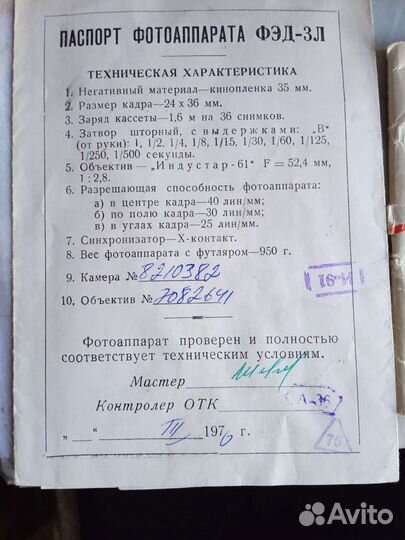 ПАСПОРТ ФОТОАППАРАТА ФЭД-3Л
ТЕХНИЧЕСКАЯ ХАРАКТЕРИСТИКА
1. Негативный материал—кинопленка 35 мм.
2. Размер кадра—24 х 36 мм.
3. Заряд кассеты—1,6 м на 36 снимков.
4. Затвор шторный, с выдержками: „В"
(от руки): 1, 1/2, 1/4, 1/8, 1/15, 1/30, 1/60, 1/125,
1/250, 1/500 секунды.
5. Объектив—„Индустар-61" F = 52,4 мм,
1 : 2,8.
6. Разрешающая способность фотоаппарата:
а) в центре кадра—40 лин/мм;
б) по полю кадра—30 лин/мм;
в) в углах кадра—25 лин/мм.
7. Синхронизатор—Х-контакт.
8. Вес фотоаппарата с футляром—950 г.
9. Камера № 8210382
10. Объектив № 7082641
16-И
Фотоаппарат проверен и полностью
соответствует техническим условиям.
Мастер
Контролер ОТК
А-36
„ — " III 1976 г.
76
Avito